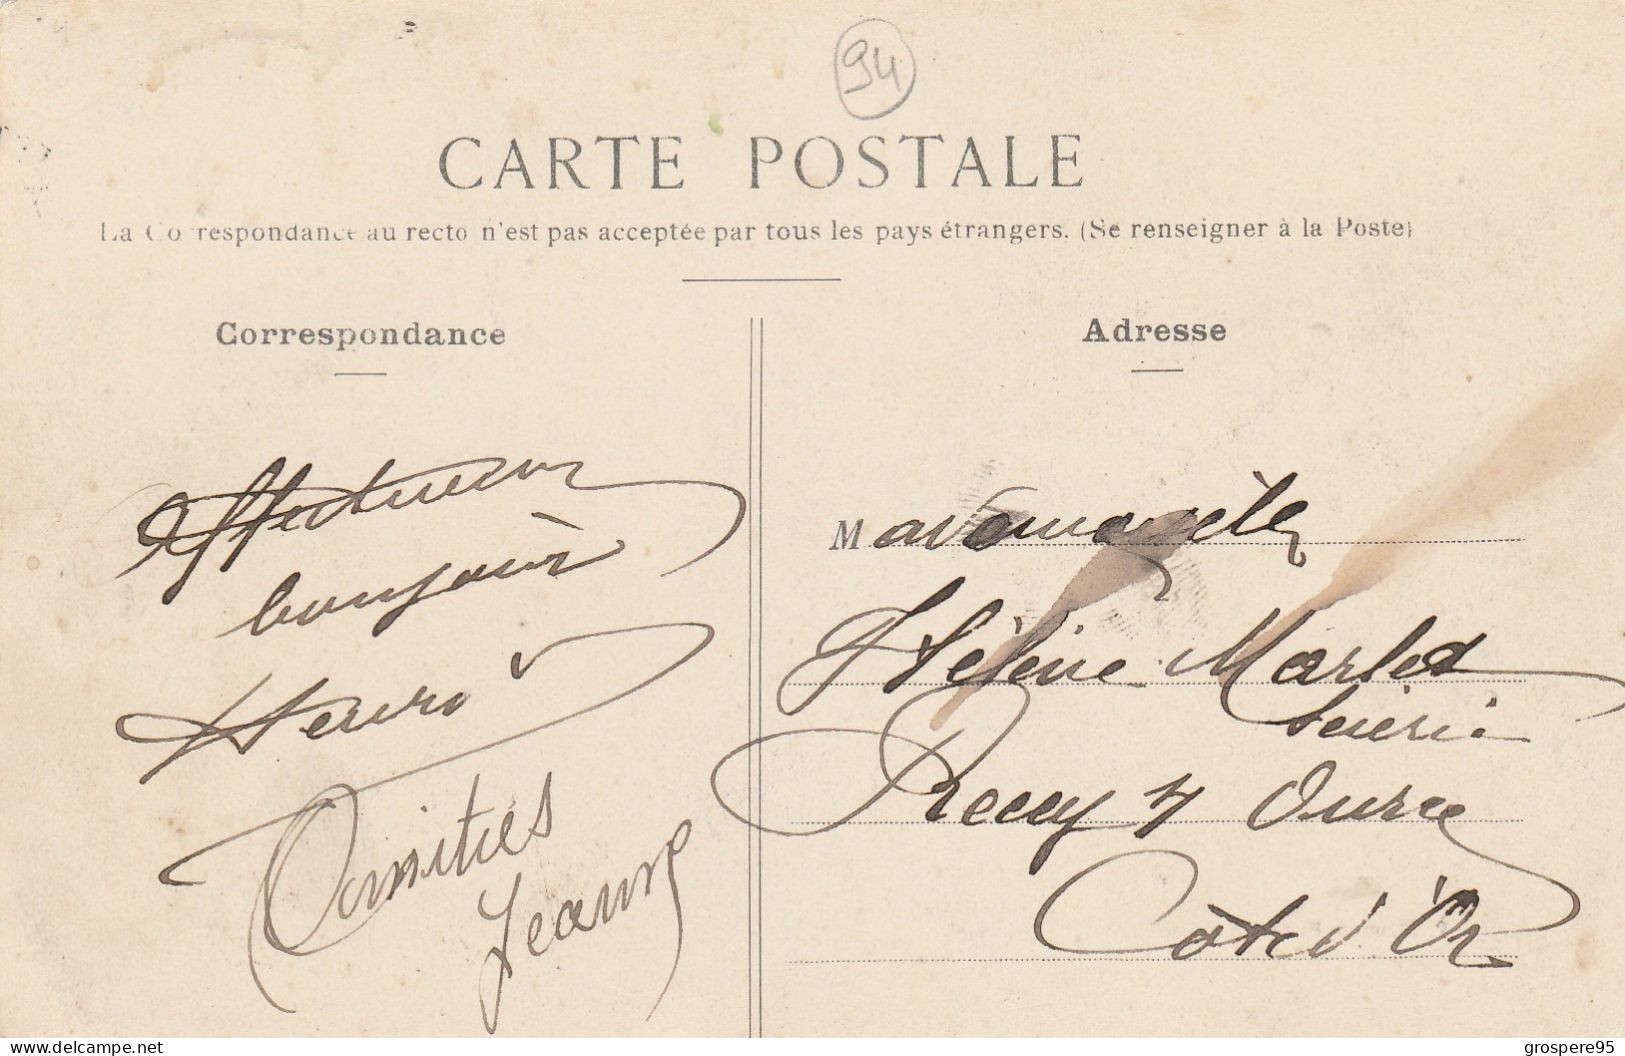 94
CARTE POSTALE
La Correspondance au recto n'est pas acceptée par tous les pays étrangers. (Se renseigner à la Poste)
Correspondance
Affectueux
bonjour
Henri
Amitiés
Jeanne
Adresse
Mademoiselle
Hélène Marlet
Recey s/ Ource
Côte d'Or
Delcampe.net
grospere95